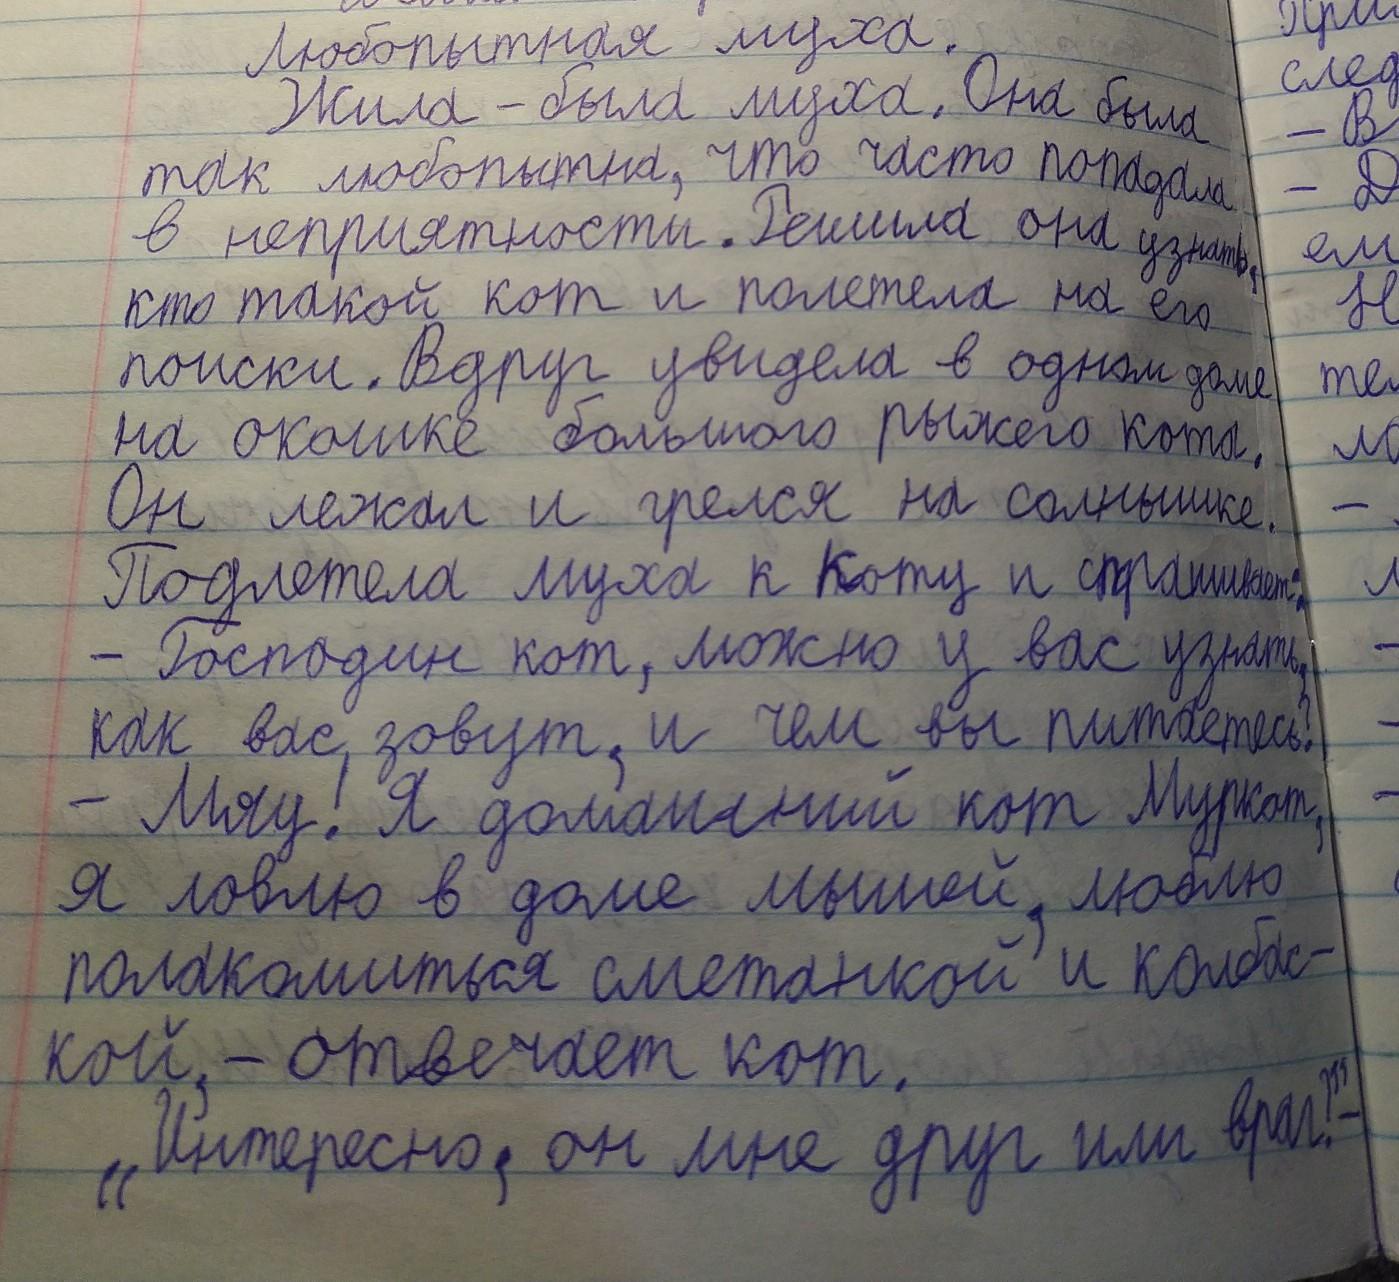 Любопытная муха.
Жила - была муха. Она была
так любопытна, что часто попадала
в неприятности. Решила она узнать,
кто такой кот и полетела на его
поиски. Вдруг увидела в одном доме
на окошке большого рыжего кота.
Он лежал и грелся на солнышке.
Подлетела муха к коту и спрашивает:
- Господин кот, можно у вас узнать,
как вас зовут, и чем вы питаетесь?
- Мяу! Я домашний кот Муркот,
я ловлю в доме мышей, люблю
полакомиться сметанкой и колбас-
кой, - отвечает кот.
„Интересно, он мне друг или враг?" -
При
след
- В
- Д
ем
Н
тел
ло
-
л
-
-
-